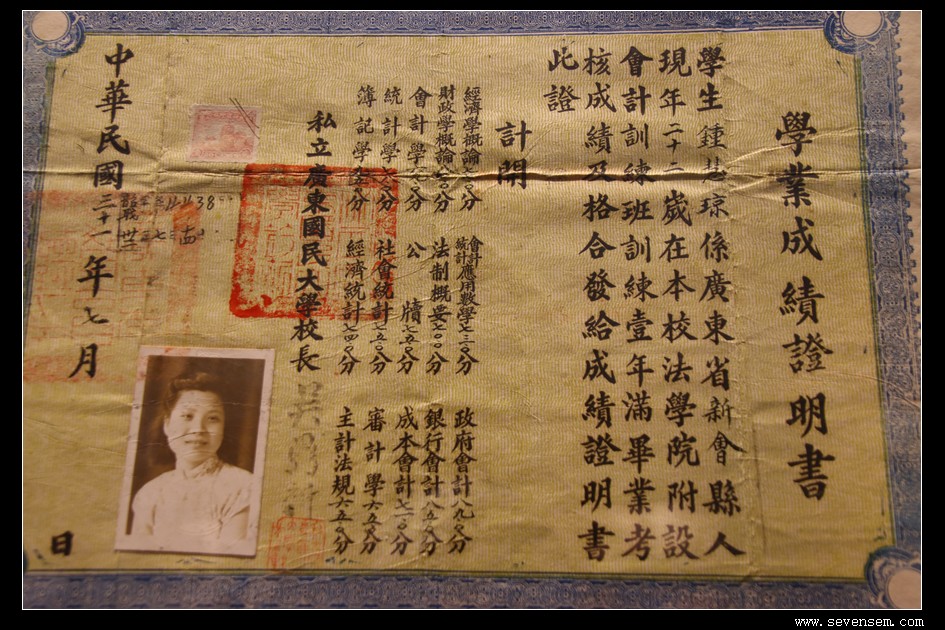 學業成績證明書
學生鍾慧琼係廣東省新會縣人
現年二十二歲在本校法學院附設
會計訓練班訓練壹年滿畢業考
核成績及格合發給成績證明書
此證
計開
經濟學概論七〇〇分
會計統計應用數學七三〇分
政府會計八九〇分
財政學概論七〇〇分
法制概要七〇〇分
銀行會計八五〇分
會計學六〇〇分
公牘七五〇分
成本會計七一〇分
統計學七〇〇分
社會統計七五〇分
審計學六五〇分
簿記學分
經濟統計七四〇分
主計法規六五〇分
私立廣東國民大學校長吳
中華民國三十一年七月日
www.sevensem.com